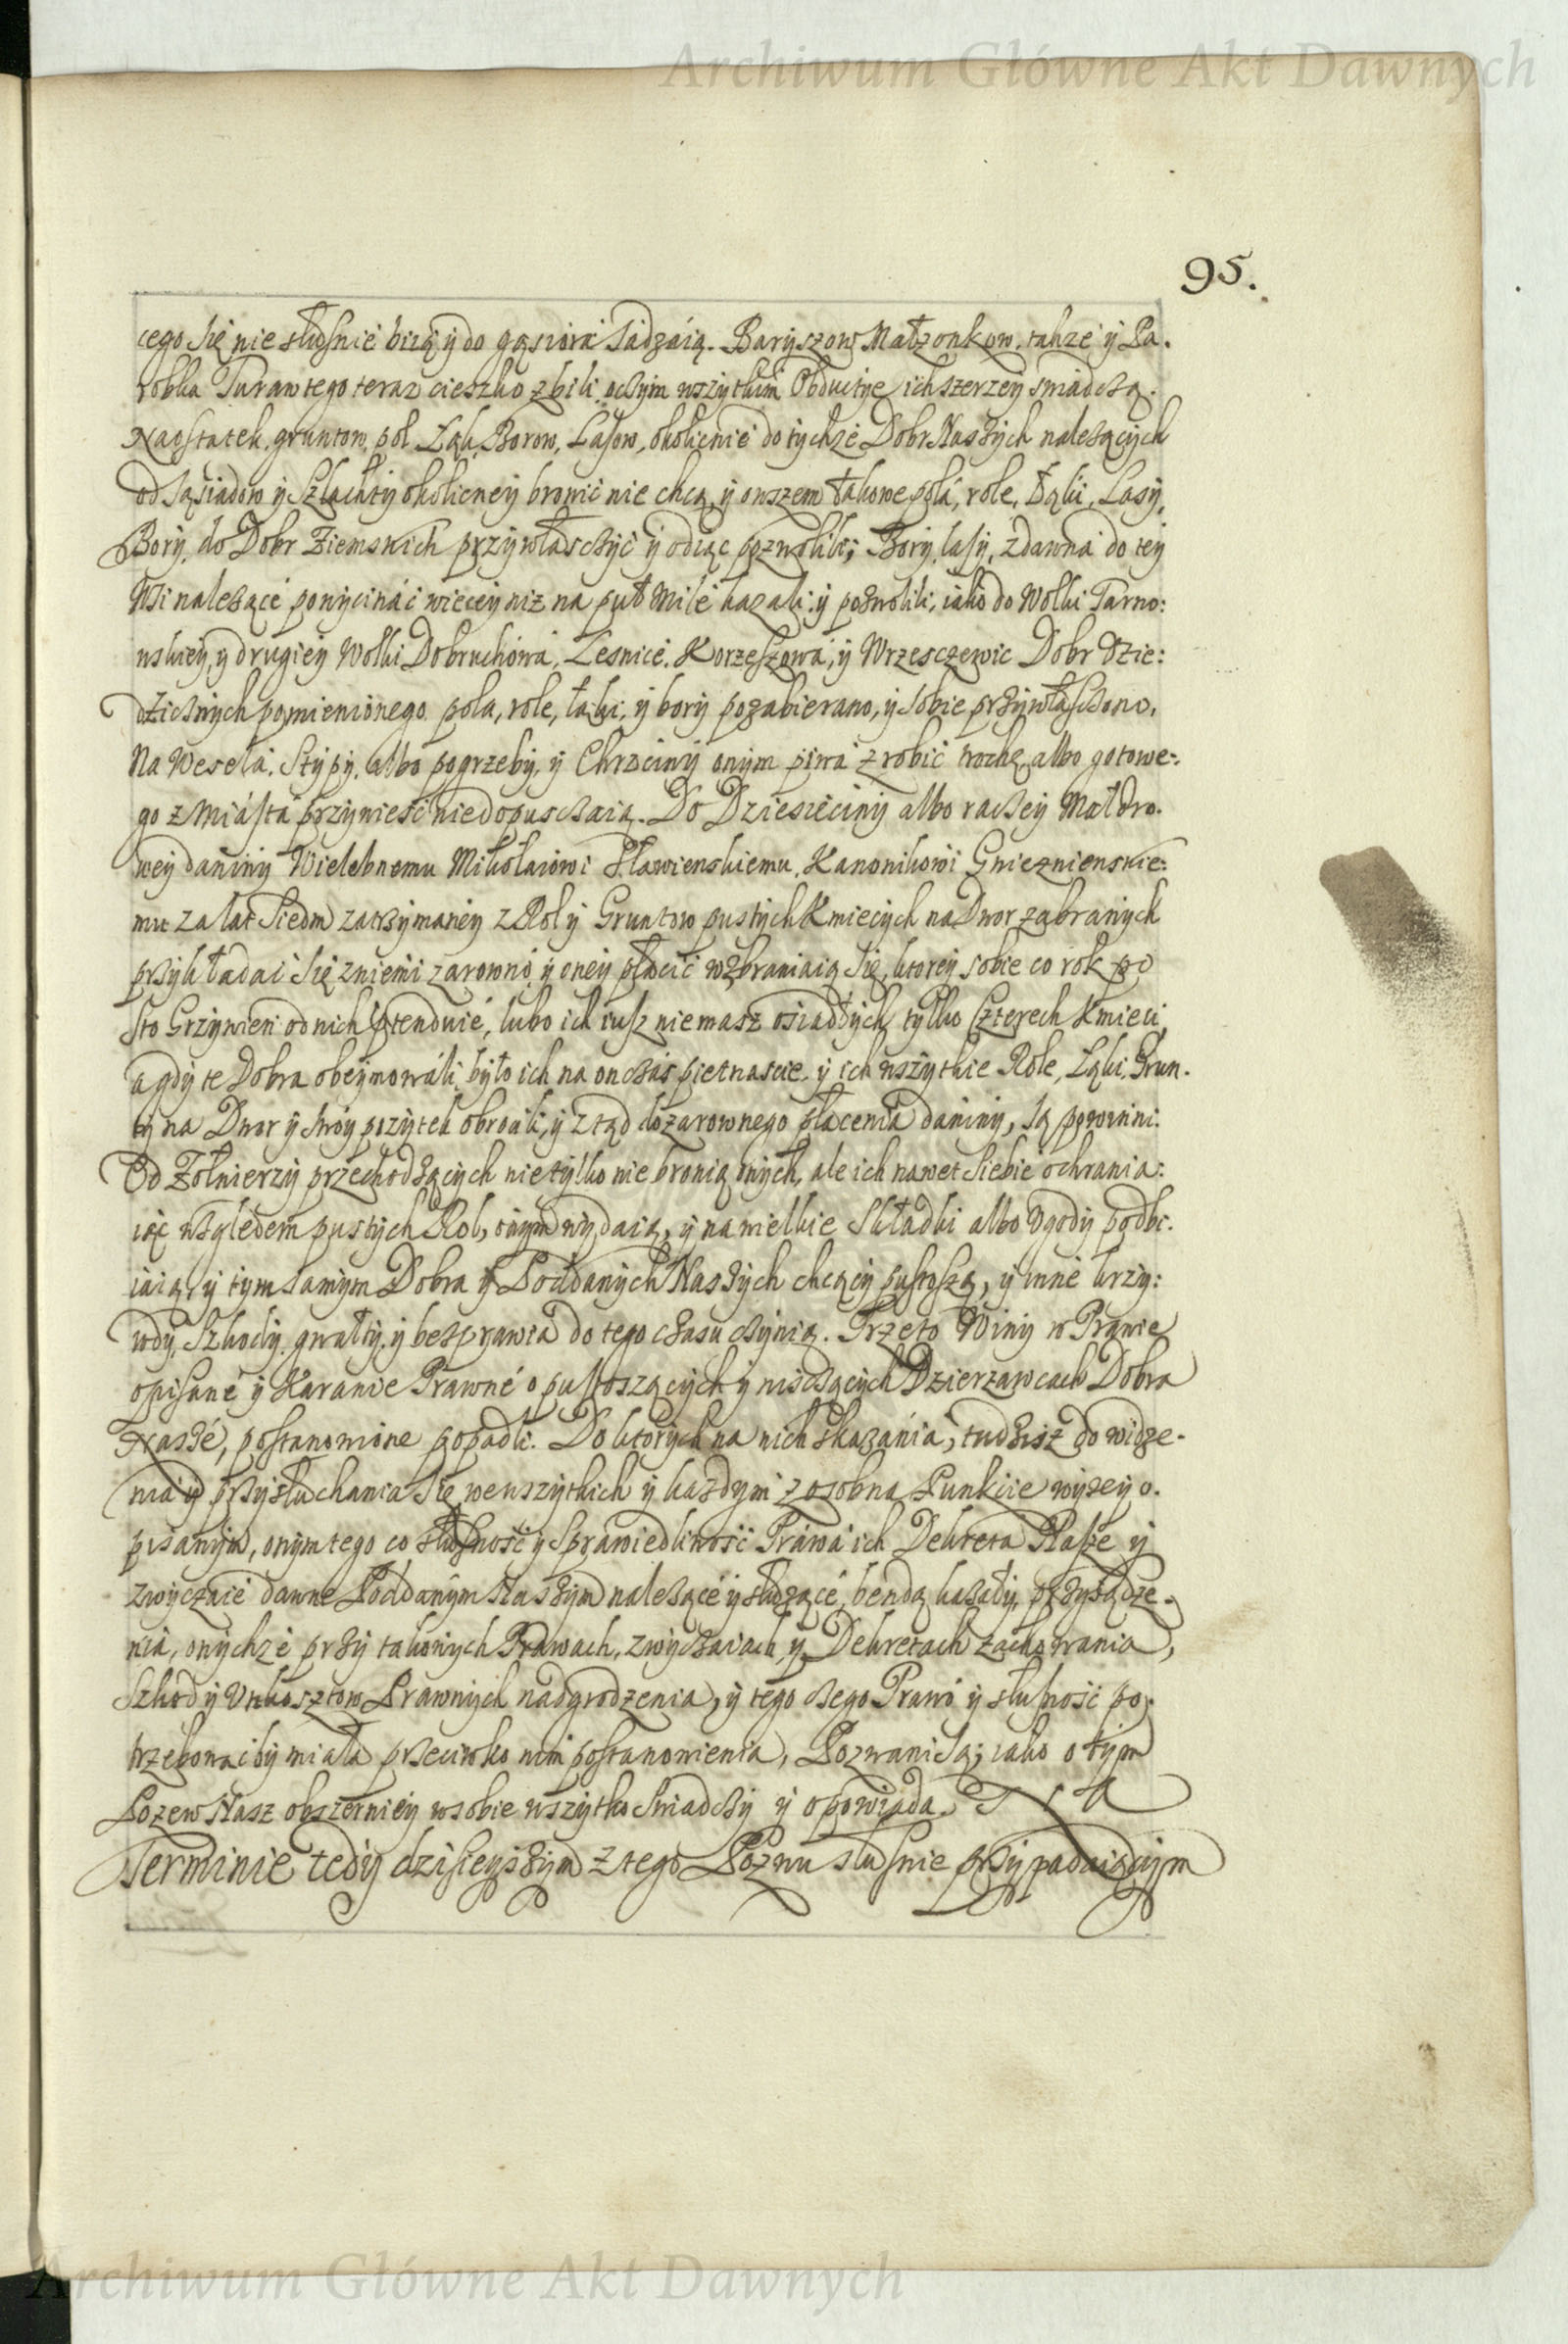 Archiwum Główne Akt Dawnych
95.
cego się nie słusnie biią y do gąsiora sadzaią. Baryszow Małzonkow, takze y Pa-
robka Turaw tego teraz cieszko zbili, oczym wszytkim Obductye ich szerzey swiadczą.
Naostatek, gruntow, pol, Łąk, Borow, Lasow, okolicnie do tychze Dobr Naszych nalezących
od Sąsiadow y Szlachty okolicney bronic nie chcą, y owszem takowe pola, role, Łąki, Lasy,
Bory, do Dobr Ziemskich przywłasczyc y odiąc pozwolili; Bory, lasy, zdawna do tey
Wsi nalezące powycinać wiecey niz na puł Mile kazali, y pozwolili, iako do Wolki Tarno:
wskiey, y drugiey Wolki Dobruchowa, Lesnice, Korzeszowa, y Wrzesczewic Dobr Dzie:
dzicznych pomienionego pola, role, łąki, y bory pozabierano, y sobie przywłasczono.
Na Wesela, Stypy, albo pogrzeby, y Chrzciny onym piwa zrobić trochę albo gotowe:
go z Miasta przyniesć niedopusczaią. Do Dziesieciny albo raczey Małdro-
wey daniny Wielebnemu Mikołaiowi Sławienskiemu, Kanonikowi Gnieznienskie:
mu za lat Siedm zatrzymaney z Rol y Gruntow pustych Kmiecych na Dwor zabranych
przykładać się zniemi zarowno y oney płacić wzbraniaią się, ktorey sobie co rok po
sto Grzywien od nich prtenduie, lubo ich iusz niemasz osiadłych tylko Czterech Kmieci,
a gdy te Dobra obeymowali, było ich na onczas pietnascie, y ich wszytkie Role, Łąki, Grun-
ty na Dwor y swoy pozytek obrocili, y ztąd do zarownego płacenia daniny, są powinni.
Od Zołnierzy przechodzących nie tylko nie bronią onych, ale ich nawet siebie ochrania:
iąc względem pustych Rol, onym wydaią, y na wielkie Składki albo Ugody podbi-
iaią, y tym samym Dobra y Poddanych Naszych chcący pustoszą, y inne krzy:
wdy, Szkody, gwałty, y besprawia do tego czasu czynią. Przeto Winy w Prawie
opisane y Karanie Prawne o pustoszących y nisczących Dzierzawcach Dobra
Nasze, postanowione popadli. Do ktorych na nich skazania, tudziesz do widze-
nia y przysłuchania się we wszytkich y kazdym z osobna Punkcie wyzey o-
pisanym, onym tego co słusność y Sprawiedliwość Prawa ich Dekreta Nasze y
zwyczaie dawne Poddanym Naszym nalezące y słuzące, bendą kazały, przysądze-
nia, onychze przy takowych Prawach, zwyczaiach, y Dekretach zachowania,
Szkod y Unkosztow Prawnych nadgrodzenia, y tego czego Prawo y słusność po-
trzebowaciby miała przeciwko nim postanowienia, Pozwani są; iako o tym
Pozew Nasz obszerniey w sobie wszytko swiadczy y opowiada. Na
Terminie tedy dzisieyszym z tego Pozwu słusnie przypadaiącym
Archiwum Główne Akt Dawnych